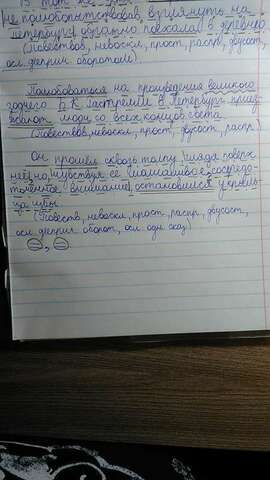 В тот же
Не полюбопытствовав, взглянуть на
Петербург, обратно поехала в деревню.
(Повествов, невоскл, прост, распр, двусост,
осл. дееприч. оборотом)
Полюбоваться на произведения великого
зодчего Б. К. Растрелли в Петербург приез-
жают люди со всех концов света.
(повествов, невоскл, прост, двусост, распр)
Он прошел сквозь толпу, глядя поверх
неё, но, чувствуя её молчаливое, сосредо-
точенное внимание, остановился у крыль-
ца избы.
(Повеств, невоскл, прост, распр, двусост,
осл. дееприч оборот, осл. одн. сказ)